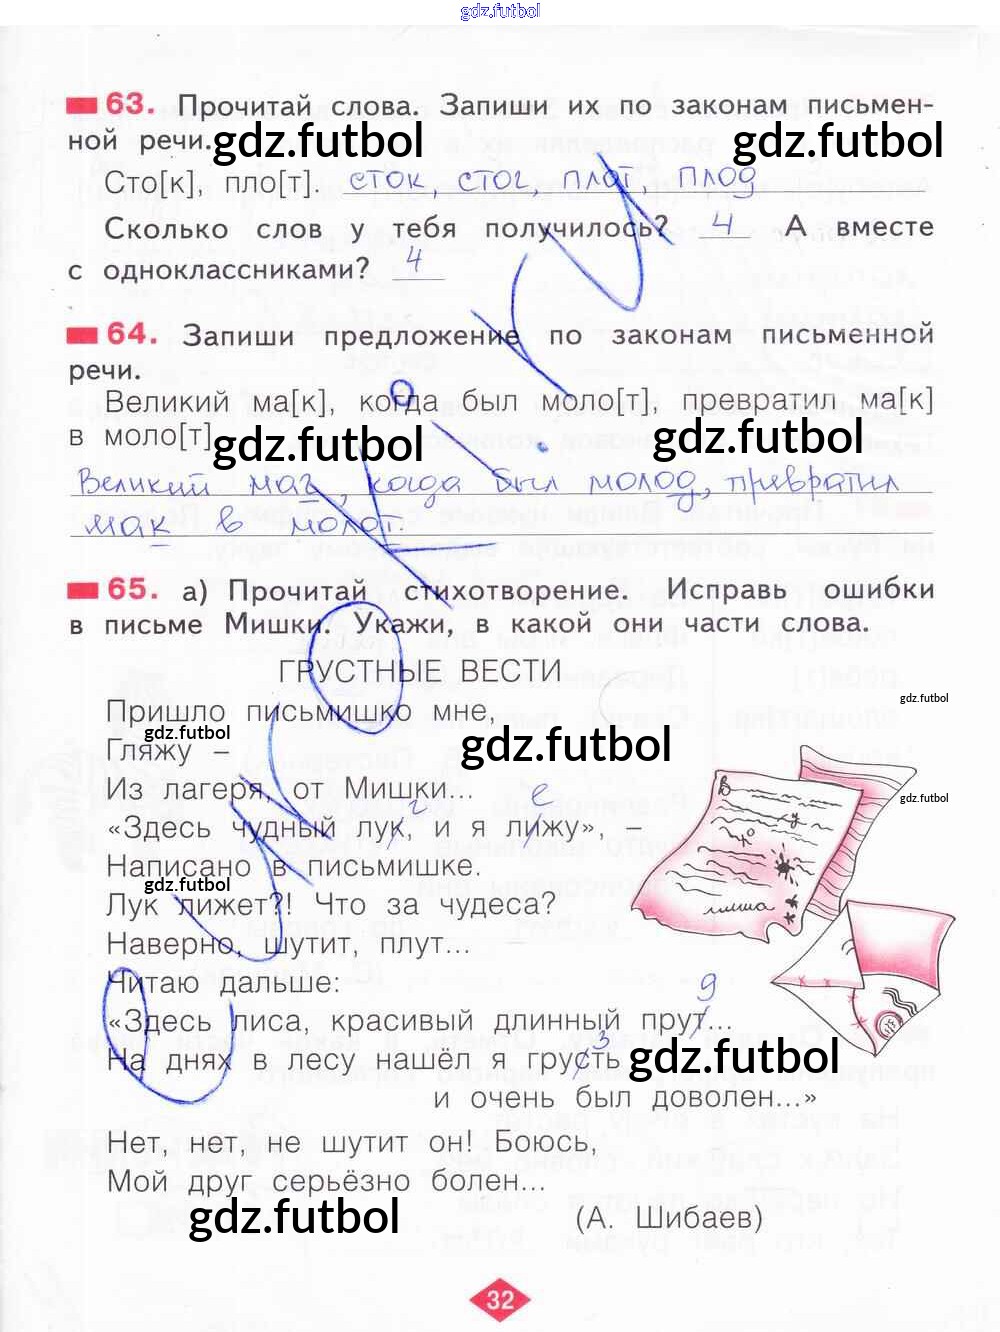 gdz.futbol
63. Прочитай слова. Запиши их по законам письмен-
ной речи.
gdz.futbol
gdz.futbol
Сто[к], пло[т]. сток стог плот, плод
Сколько слов у тебя получилось? 4 А вместе
с одноклассниками? 4
64. Запиши предложение по законам письменной
речи.
Великий ма[к], когда был моло[т], превратил ма[к]
в моло[т]
gdz.futbol
gdz.futbol
Великий маг, когда был молод, превратил
мак в молот.
65. а) Прочитай стихотворение. Исправь ошибки
в письме Мишки. Укажи, в какой они части слова.
ГРУСТНЫЕ ВЕСТИ
gdz.futbol
Пришло письмишко мне,
gdz.futbol
Гляжу –
Из лагеря, от Мишки...
gdz.futbol
г е
«Здесь чудный лук, и я лижу», –
Написано в письмишке.
gdz.futbol
Лук лижет?! Что за чудеса?
Наверно, шутит, плут...
Читаю дальше:
д
«Здесь лиса, красивый длинный прут...
з
На днях в лесу нашёл я грусть
gdz.futbol
и очень был доволен...»
Нет, нет, не шутит он! Боюсь,
Мой друг серьёзно болен...
gdz.futbol
(А. Шибаев)
миша
32